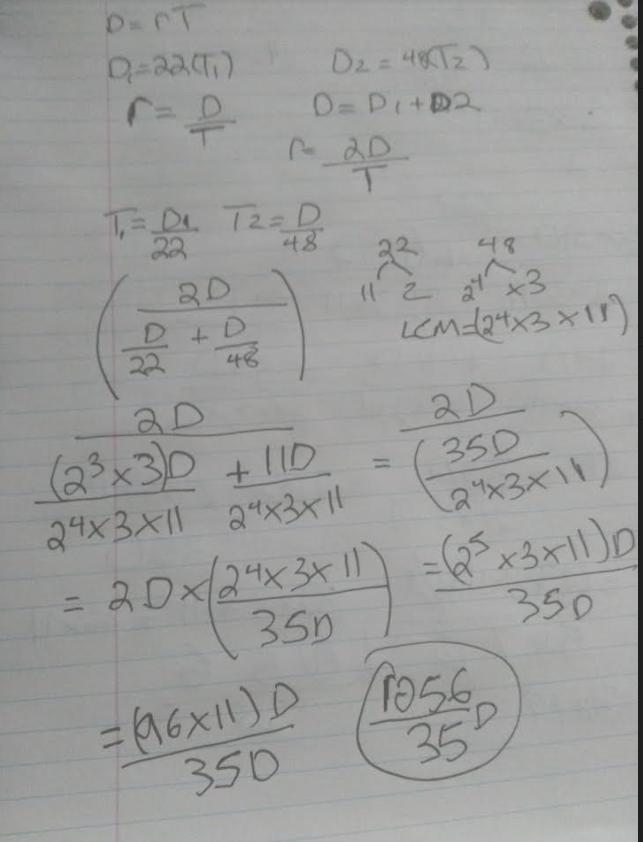 D = rT
D₁ = 22(T₁) D₂ = 48(T₂)
r = D/T D = D₁ + D2
r = 2D/T
T₁ = D₁/22 T2 = D/48
22 48
11 2 2⁴ × 3
(2D/(D/22 + D/48)) LCM = (2⁴ × 3 × 11)
2D/((2³ × 3)D/(2⁴ × 3 × 11) + 11D/(2⁴ × 3 × 11)) = 2D/(35D/(2⁴ × 3 × 11))
= 2D × (2⁴ × 3 × 11/35D) = (2⁵ × 3 × 11)D/35D
= (96 × 11)D/35D 1056/35 D